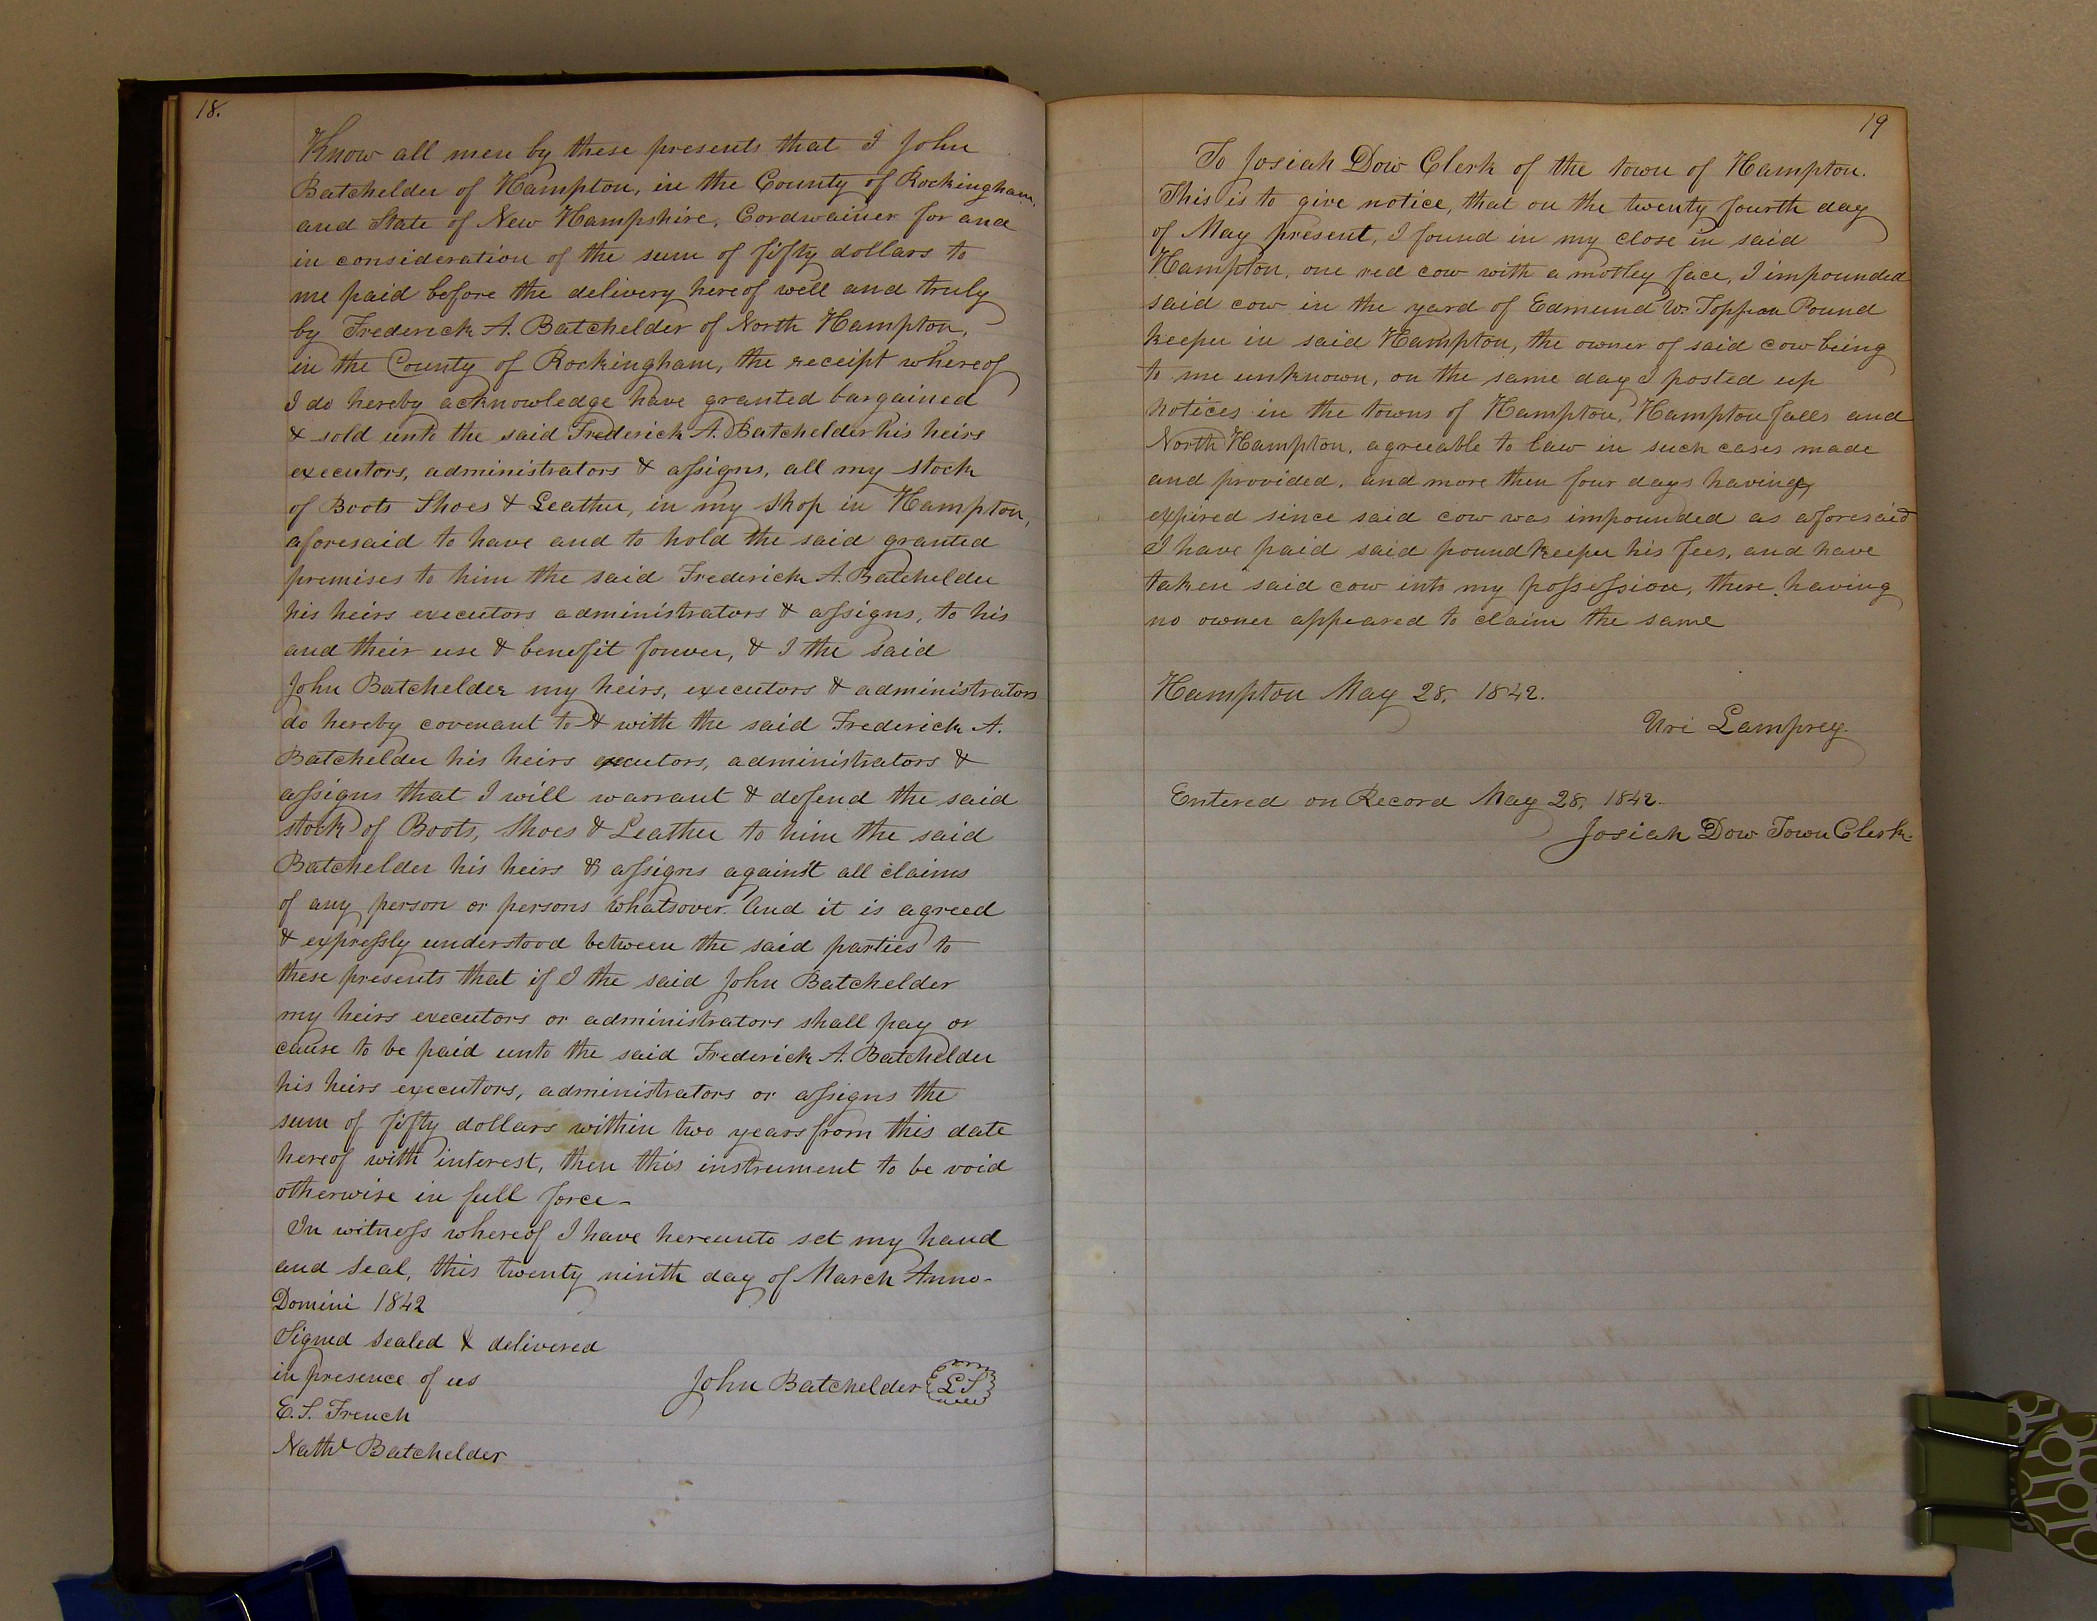 18.
Know all men by these presents that I John
Batchelder of Hampton, in the County of Rockingham,
and State of New Hampshire, Cordwainer for and
in consideration of the sum of fifty dollars to
me paid before the delivery hereof well and truly
by Frederick A. Batchelder of North Hampton,
in the County of Rockingham, the receipt whereof
I do hereby acknowledge have granted bargained
& sold unto the said Frederick A. Batchelder his heirs
executors, administrators & assigns, all my stock
of Boots Shoes & Leather, in my shop in Hampton,
aforesaid to have and to hold the said granted
premises to him the said Frederick A. Batchelder
his heirs executors administrators & assigns, to his
and their use & benefit forever, & I the said
John Batchelder my heirs, executors & administrators
do hereby covenant to & with the said Frederick A.
Batchelder his heirs executors, administrators &
assigns that I will warrant & defend the said
stock of Boots, Shoes & Leather to him the said
Batchelder his heirs & assigns against all claims
of any person or persons whatsover. And it is agreed
& expressly understood between the said parties to
these presents that if I the said John Batchelder
my heirs executors or administrators shall pay or
cause to be paid unto the said Frederick A. Batchelder
his heirs executors, administrators or assigns the
sum of fifty dollars within two years from this date
hereof with interest, then this instrument to be void
otherwise in full force-
In witness whereof I have hereunto set my hand
and seal, this twenty ninth day of March Anno-
Domini 1842
Signed sealed & delivered
in presence of us
John Batchelder LS
E. S. French
Nathl Batchelder
19
To Josiah Dow Clerk of the town of Hampton.
This is to give notice, that on the twenty fourth day
of May present, I found in my close in said
Hampton, one red cow with a motley face, I impounded
said cow in the yard of Edmund W. Toppan Pound
keeper in said Hampton, the owner of said cow being
to me unknown, on the same day I posted up
notices in the towns of Hampton, Hampton falls and
North Hampton, agreeable to law in such cases made
and provided, and more then four days having
expired since said cow was impounded as aforesaid
I have paid said pound keeper his fees, and have
taken said cow into my possession, there having
no owner appeared to claim the same
Hampton May 28, 1842.
Uri Lamprey.
Entered on Record May 28, 1842.
Josiah Dow Town Clerk.